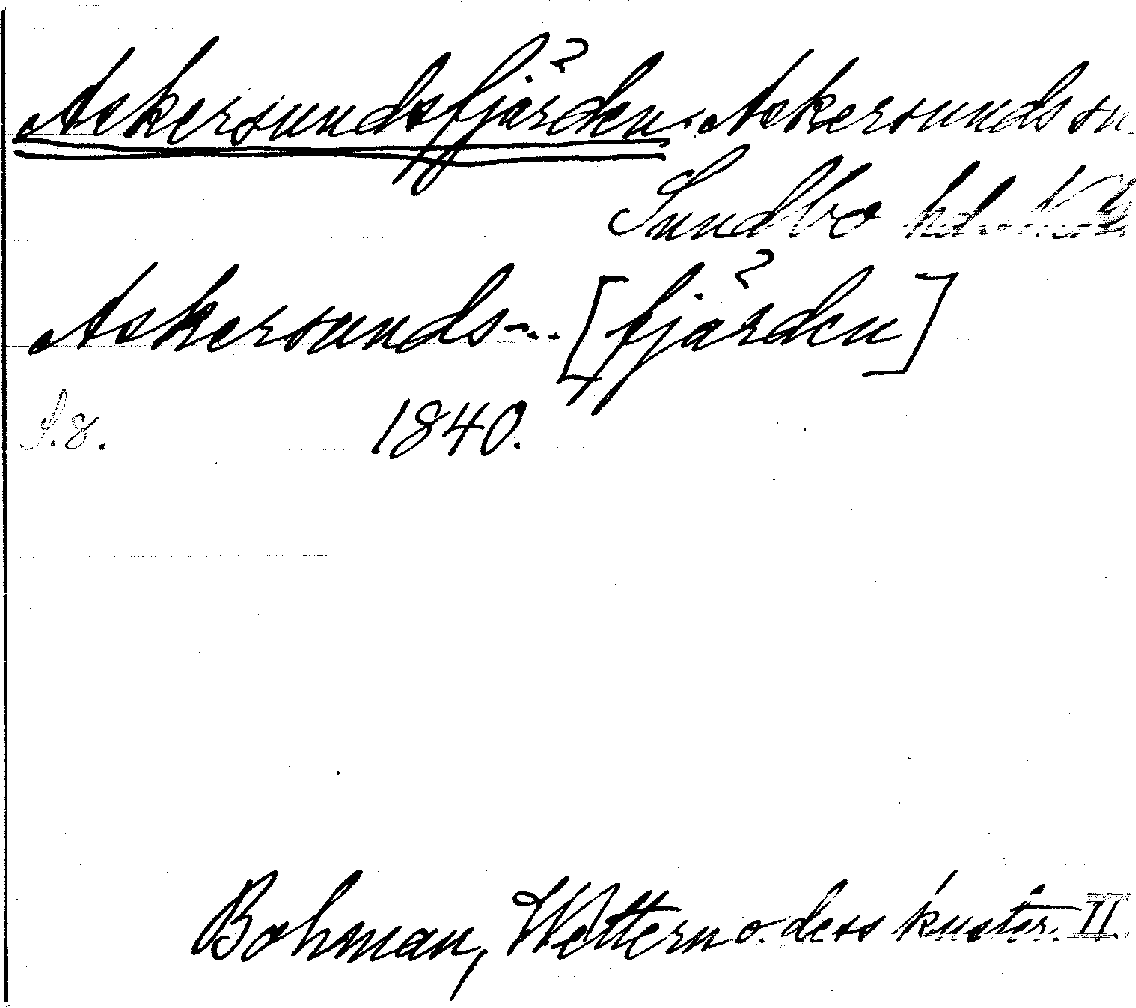 Askersundsfjärden. Askersunds sn.
Sundbo hd.
Askersunds-... [fjärden]
S. 8. 1840.
Bohman, Wettern o. dess kuster. II.